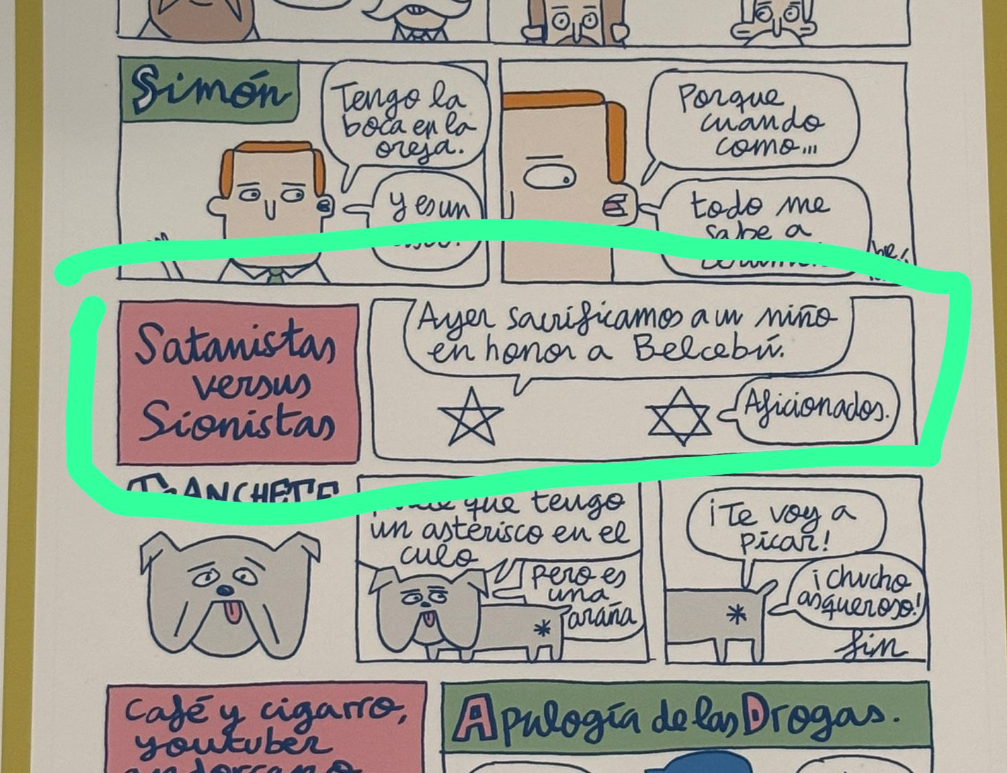 Simón
Tengo la
boca en la
oreja.
Y es un
Porque
cuando
como...
todo me
sabe a
Satanistas
versus
Sionistas
Ayer sacrificamos a un niño
en honor a Belcebú.
Aficionados.
TRANCHETE
que tengo
un asterisco en el
culo
pero es
una
araña
¡Te voy a
picar!
¡chucho
asqueroso!
fin
Café y cigarro,
youtuber
Apología de las Drogas.